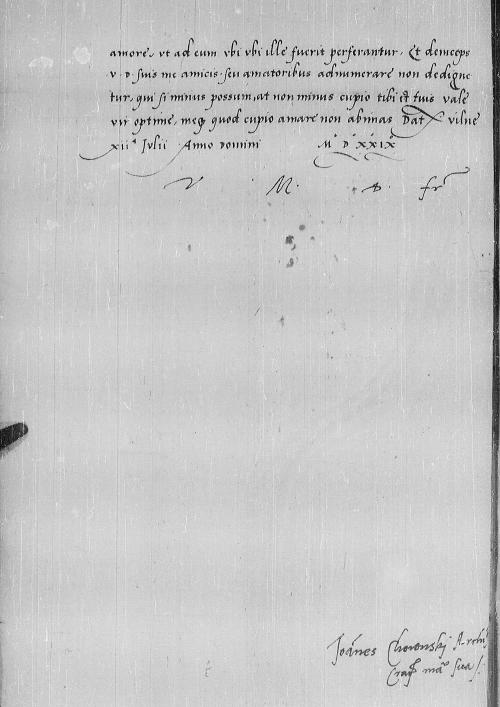 amore. vt ad eum vbi vbi ille fuerit perferantur. Et deinceps
v. d. suis me amicis. seu amatoribus adnumerare non dedigne
tur, qui si minus possum, at non minus cupio tibi et tuis vale
vir optime. meq quod cupio amare non abnuas Dat vilne
xiiª Julii Anno domini M° D° xxix°
V. M. D. fr
Joānes Choienskj Archi
Crac manu sua